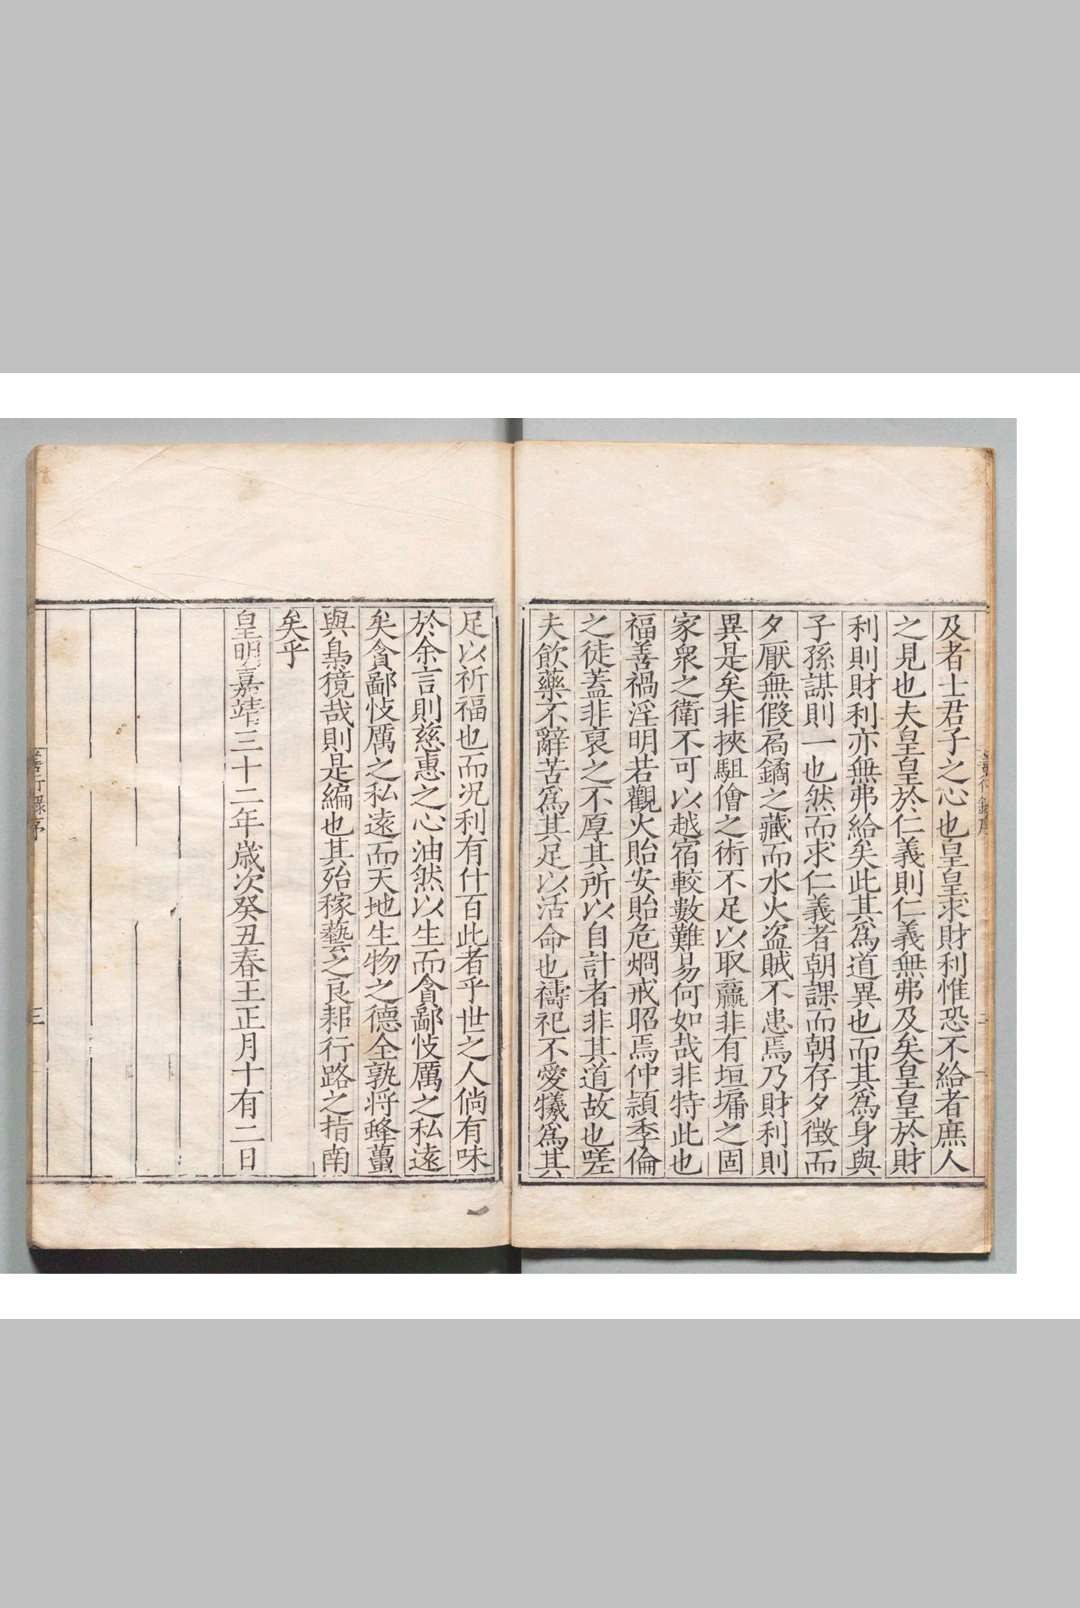 及者士君子之心也皇皇求財利惟恐不給者庶人
之見也夫皇皇於仁義則仁義無弗及矣皇皇於財
利則財利亦無弗給矣此其為道異也而其為身與
子孫謀則一也然而求仁義者朝課而朝存夕徵而
夕厭無假扃鐍之藏而水火盗賊不患焉乃財利則
異是矣非挾駔儈之術不足以取贏非有垣墉之固
家衆之衛不可以越宿較數難易何如哉非特此也
福善禍淫明若觀火貽安貽危烱戒昭焉仲頴季倫
之徒蓋非裒之不厚其所以自計者非其道故也嗟
夫飲藥不辭苦為其足以活命也禱祀不愛犧為其
足以祈福也而况利有什百此者乎世之人倘有味
於余言則慈惠之心油然以生而貪鄙忮厲之私遠
矣貪鄙忮厲之私遠而天地生物之德全孰将蜂蠆
與梟獍哉則是編也其殆稼藝之良耜行路之指南
矣乎
皇明嘉靖三十二年歲次癸丑春王正月十有二日
善行錄序
三